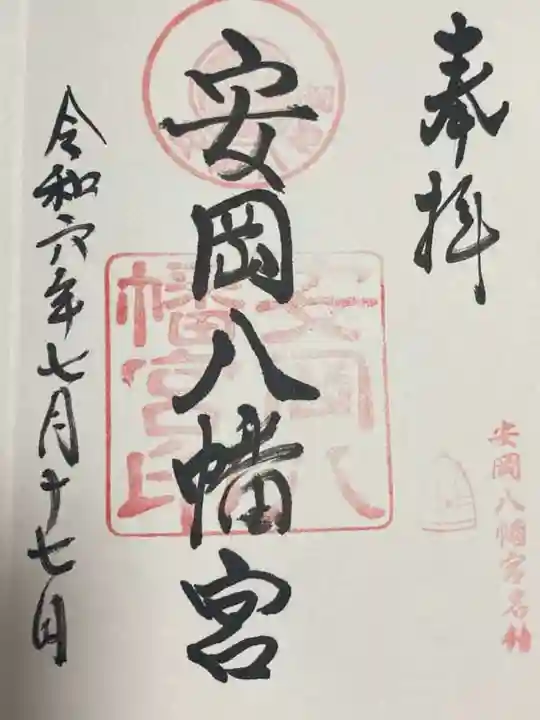 奉拝
安岡八幡宮
令和六年七月十七日
安岡八幡宮印
安岡八幡宮名